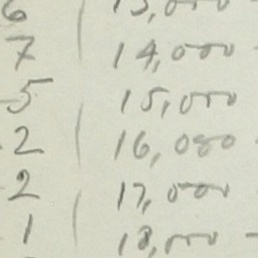 6 13,000
7 14,000
5 15,000
2 16,000
2 17,000
1 18,000